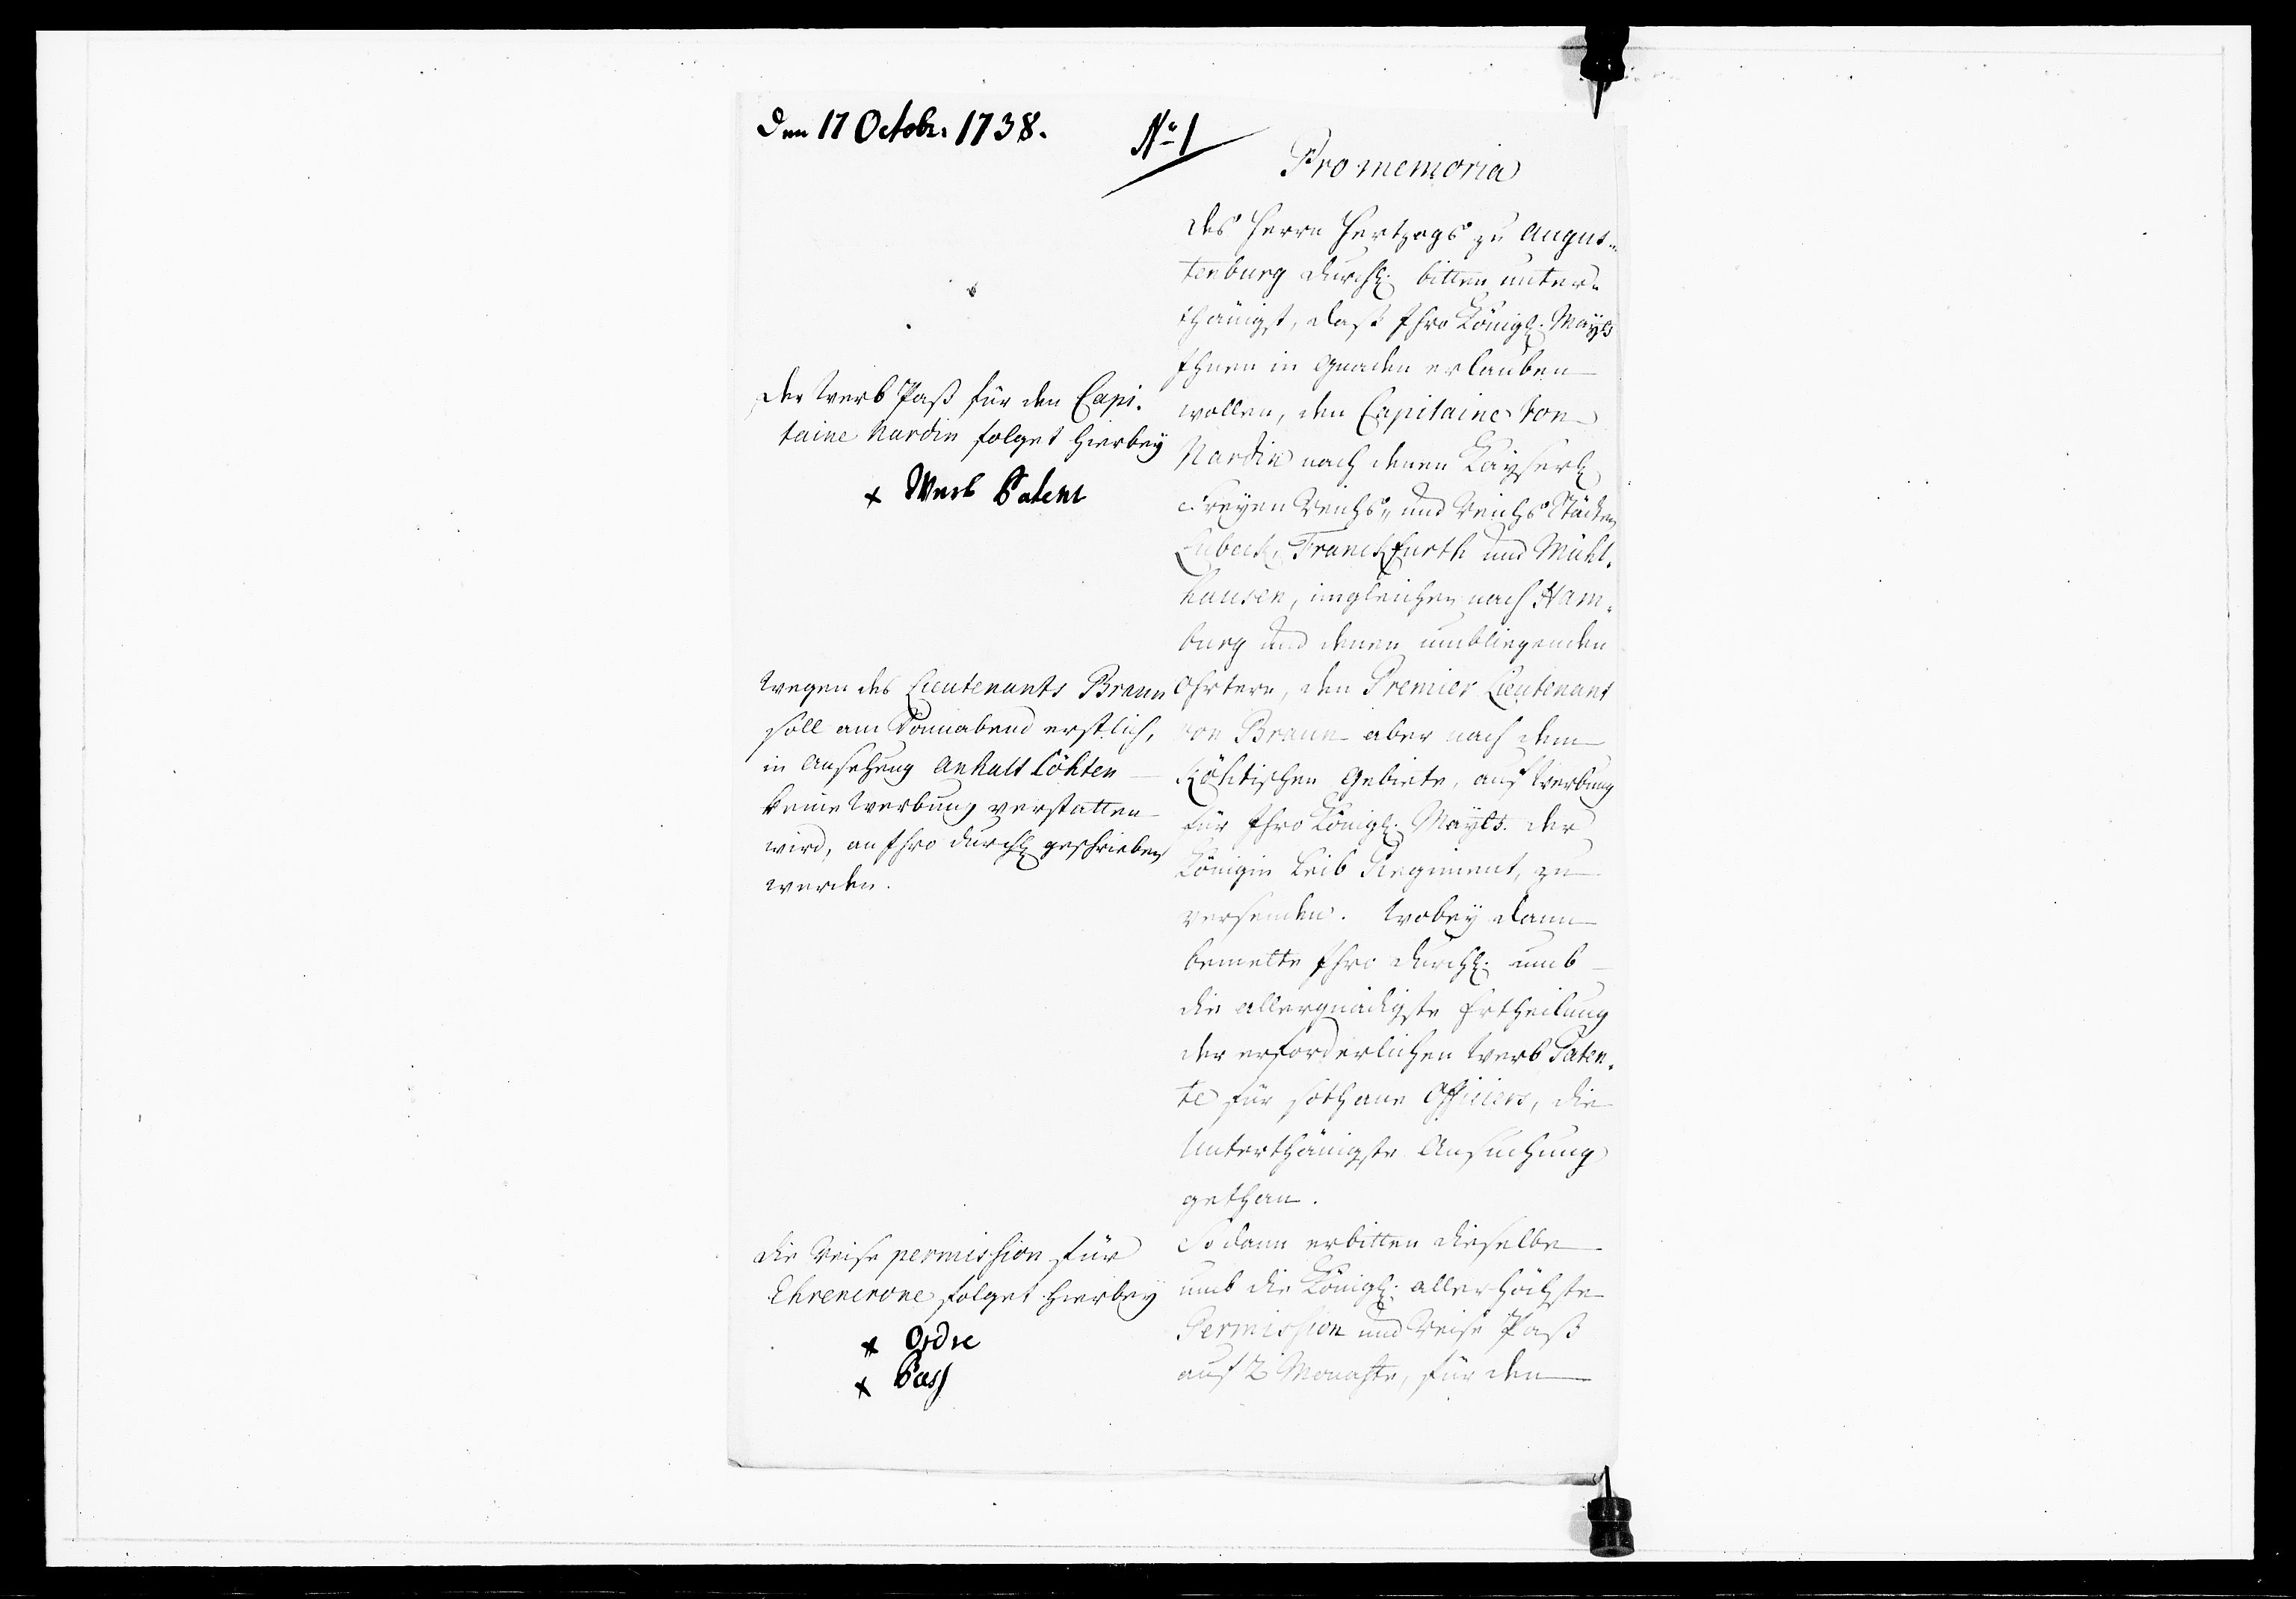 Den 17 Octobr. 1738.
No 1
Promemoria
des Herrn Hertzogs zu Augus„
tenburg Durchl. bitten unter„
thänigst, daß Ihro Königl. Mayts
Ihnen in Gnaden erlauben
wollen, den Capitaine von
Nardin nach denen Kayserl.
Freyen Reichs„ und Reichs Städten
Lubeck, Franckfurth und Mühl„
hausen, imgleichen nach Ham„
burg und denen umbliegenden
Ohrtern, den Premier Lieutenant
von Braun aber nach dem
Köhtischen Gebiete, auf Werbung
für Ihro Königl. Mayts. der
Königin Leib Regiment, zu
versenden. Wobey dann
bemelte Ihro Durchl. umb
die allergnädigste Ertheilung
der erforderlichen Werb Paten„
te für sothane Officiers, die
Unterthänigste Ansuchung
gethan.
So dann erbitten dieselbe
umb die Königl. allerhöchste
Permission und Reise Paß
auf 2 Monahte, für den
Der Werb Paß für den Capi„
taine Nardin folget hierbey
x Werb Patent
Wegen des Lieutenants Braun
soll am Sonnabend erstlich,
in Ansehung Anhalt Cöhten
keine Werbung verstatten
wird, an Ihro Durchl geschrieben
werden.
Die Reise permission für
Ehrencrone folget hierbey
x Ordre
x Pass